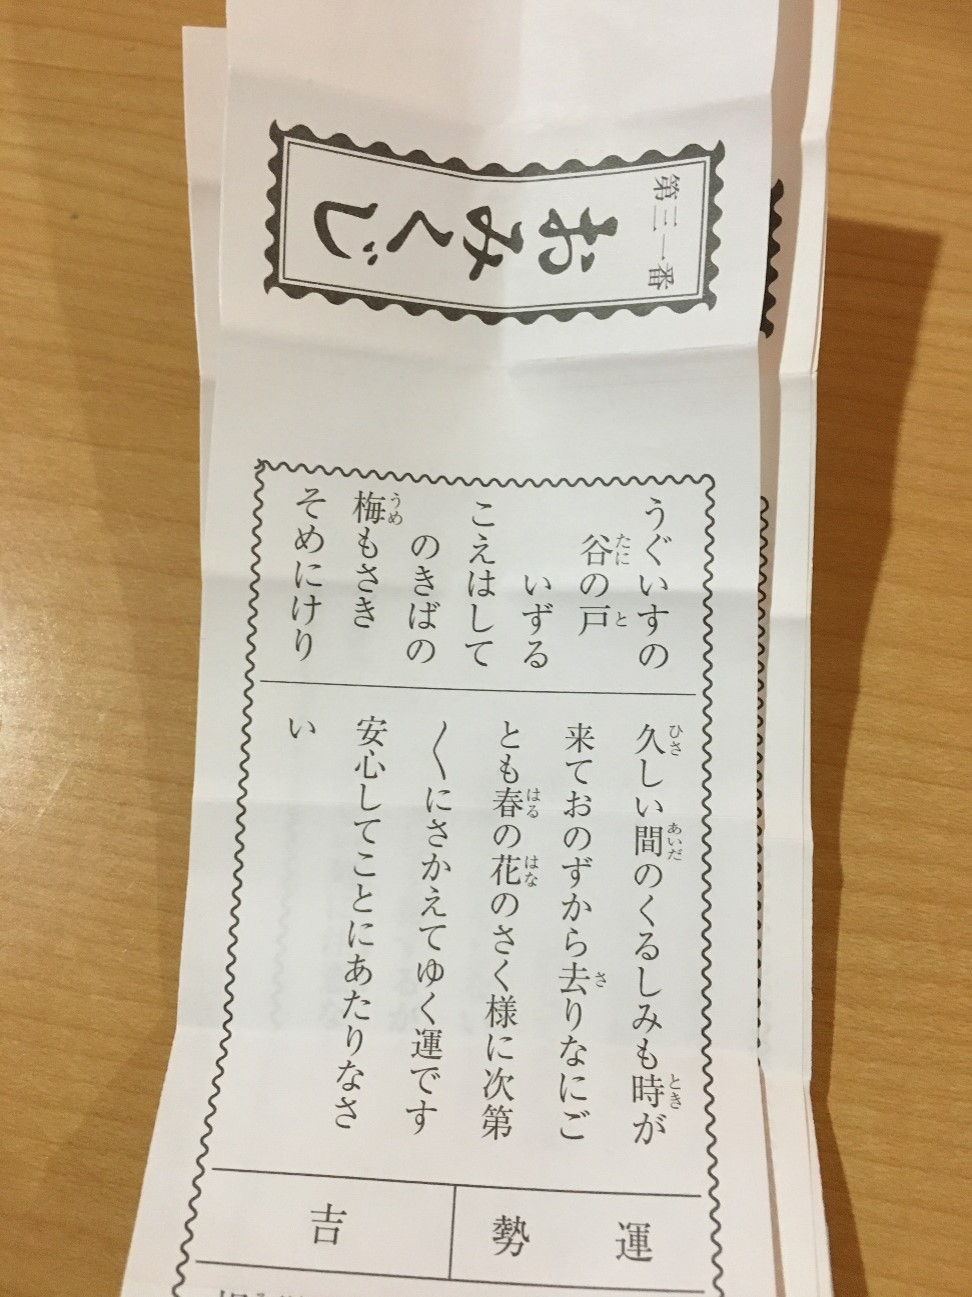 第三一番
おみくじ
うぐいすの
谷の戸
いずる
こえはして
のきばの
梅もさき
そめにけり
久しい間のくるしみも時が
来ておのずから去りなにご
とも春の花のさく様に次第
〱にさかえてゆく運です
安心してことにあたりなさ
い
運勢
吉